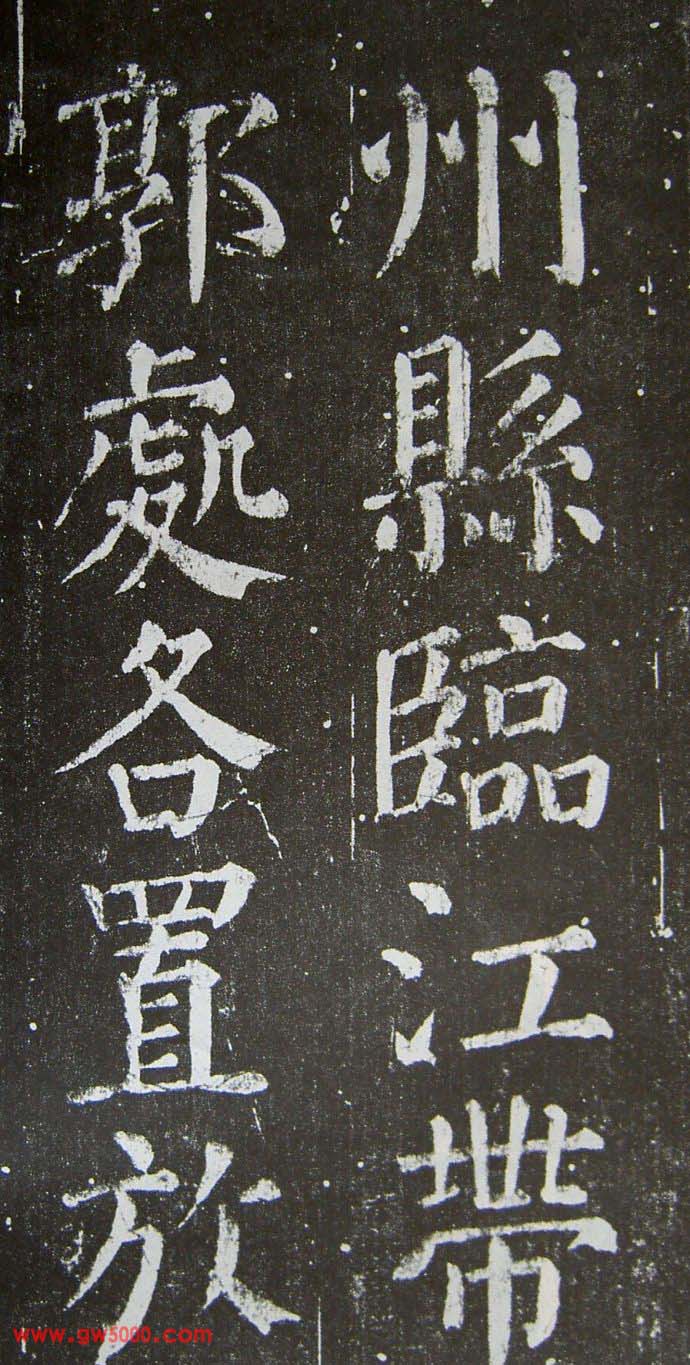 州縣臨江帶
郭處各置放
www.gw5000.com